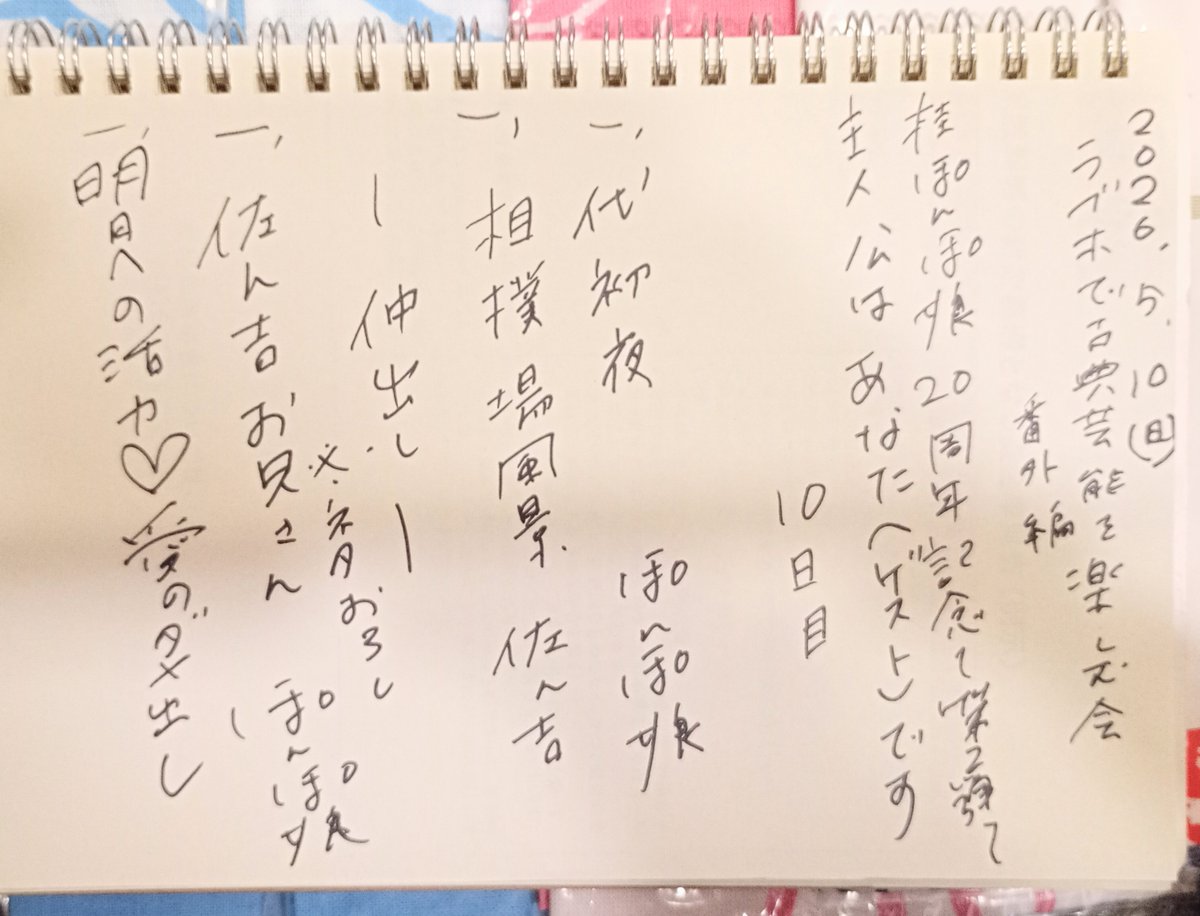 2026.5.10(日)
ラブホで古典芸能を楽しむ会
番外編
桂ぽんぽ娘20周年記念〜第2弾〜
主人公はあなた(ゲスト)です
10日目
一、代初夜 ぽんぽ娘
一、相撲場風景 佐ん吉
ー仲出しー
※ネタおろし
一、佐ん吉お兄さん ぽんぽ娘
一、明日への活力♡愛のダメ出し